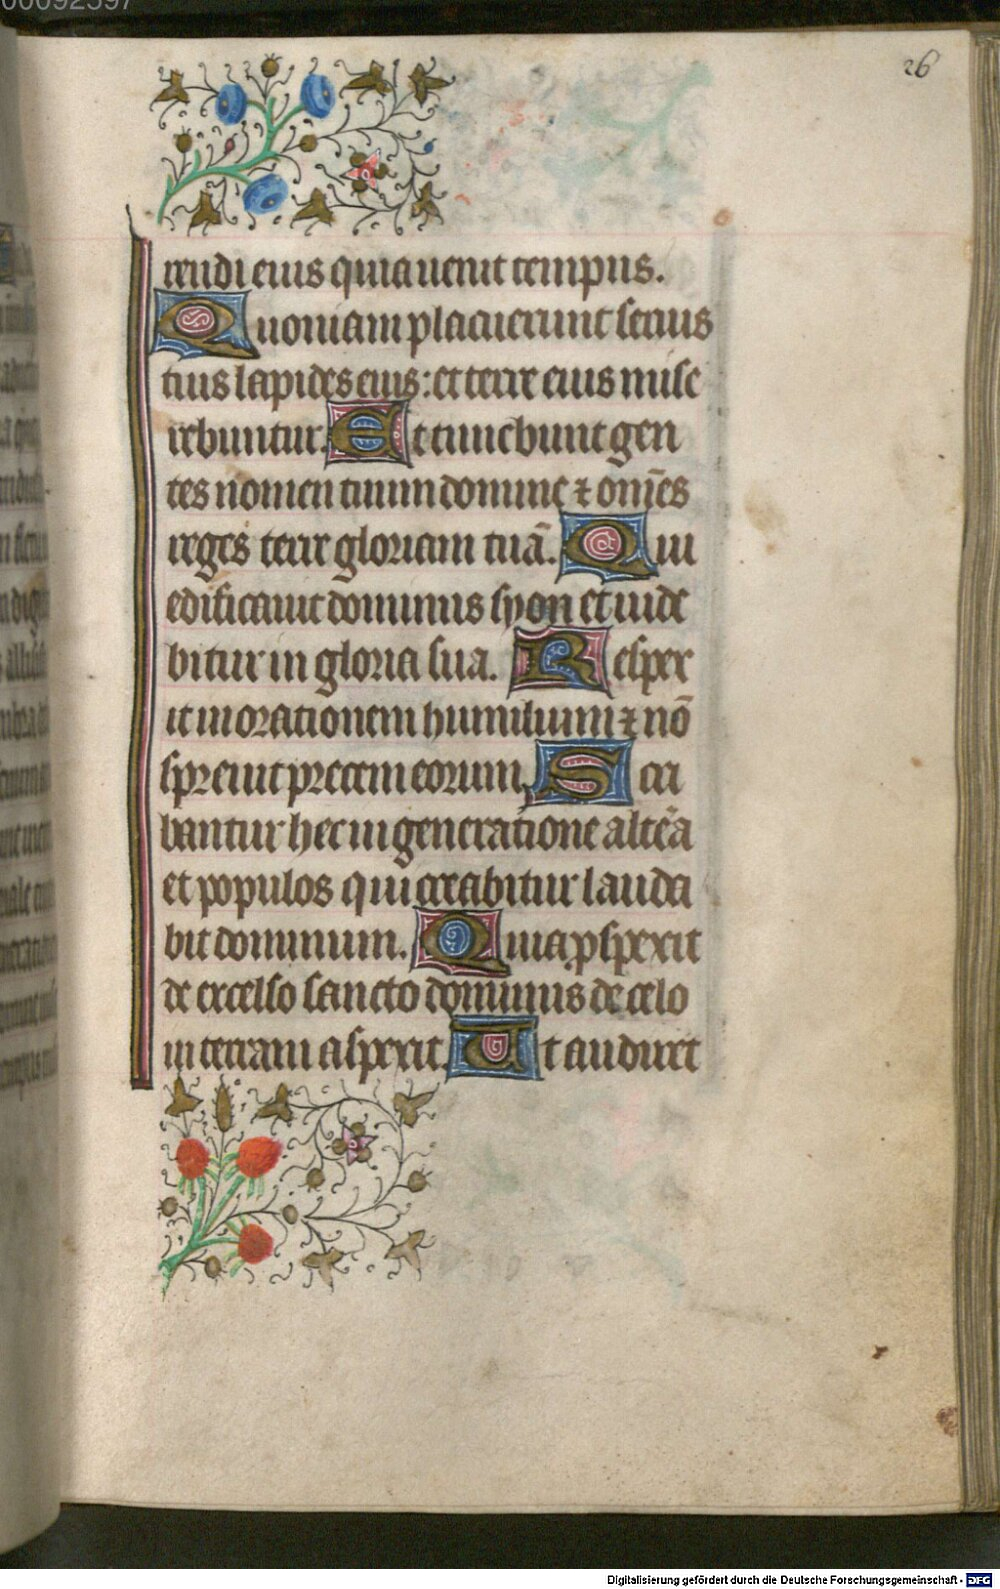 00092597
26
rendi eius quia uenit tempus.
Quoniam placuerunt seruis
tuis lapides eius: et terre eius mise
rebuntur. Et timebunt gen
tes nomen tuum domine ⁊ om̄es
reges terre gloriam tuā. Qui
edificauit dominus syon et uide
bitur in gloria sua. Respex
it in orationem humilium ⁊ nō
spreuit precem eorum. Scri
bantur hec in generatione alt̄ea
et populos qui creabitur lauda
bit dominum. Quia ꝓspexit
de excelso sancto dominus de celo
in terram aspexit. Ut audiret
Digitalisierung gefördert durch die Deutsche Forschungsgemeinschaft - DFG